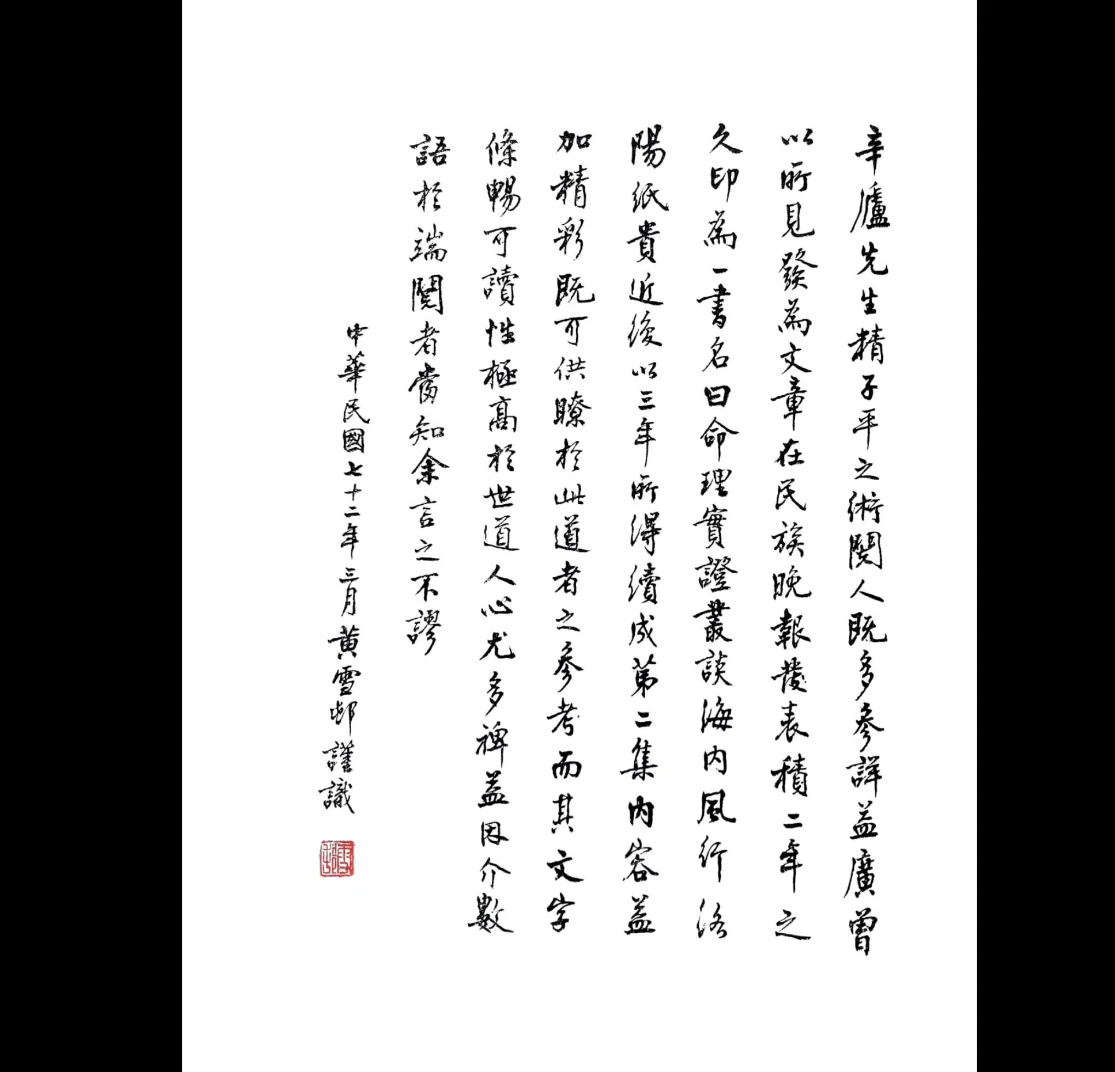 辛廬先生精子平之術閱人既多參詳益廣曾
以所見發為文章在民族晚報發表積二年之
久印為一書名曰命理實證叢談海内風行洛
陽紙貴近後以三年所得續成第二集内容益
加精彩既可供瞭於此道者之參考而其文字
條暢可讀性極高於世道人心尤多裨益因介數
語於端閱者當知余言之不謬
中華民國七十二年三月黃雪邨謹識